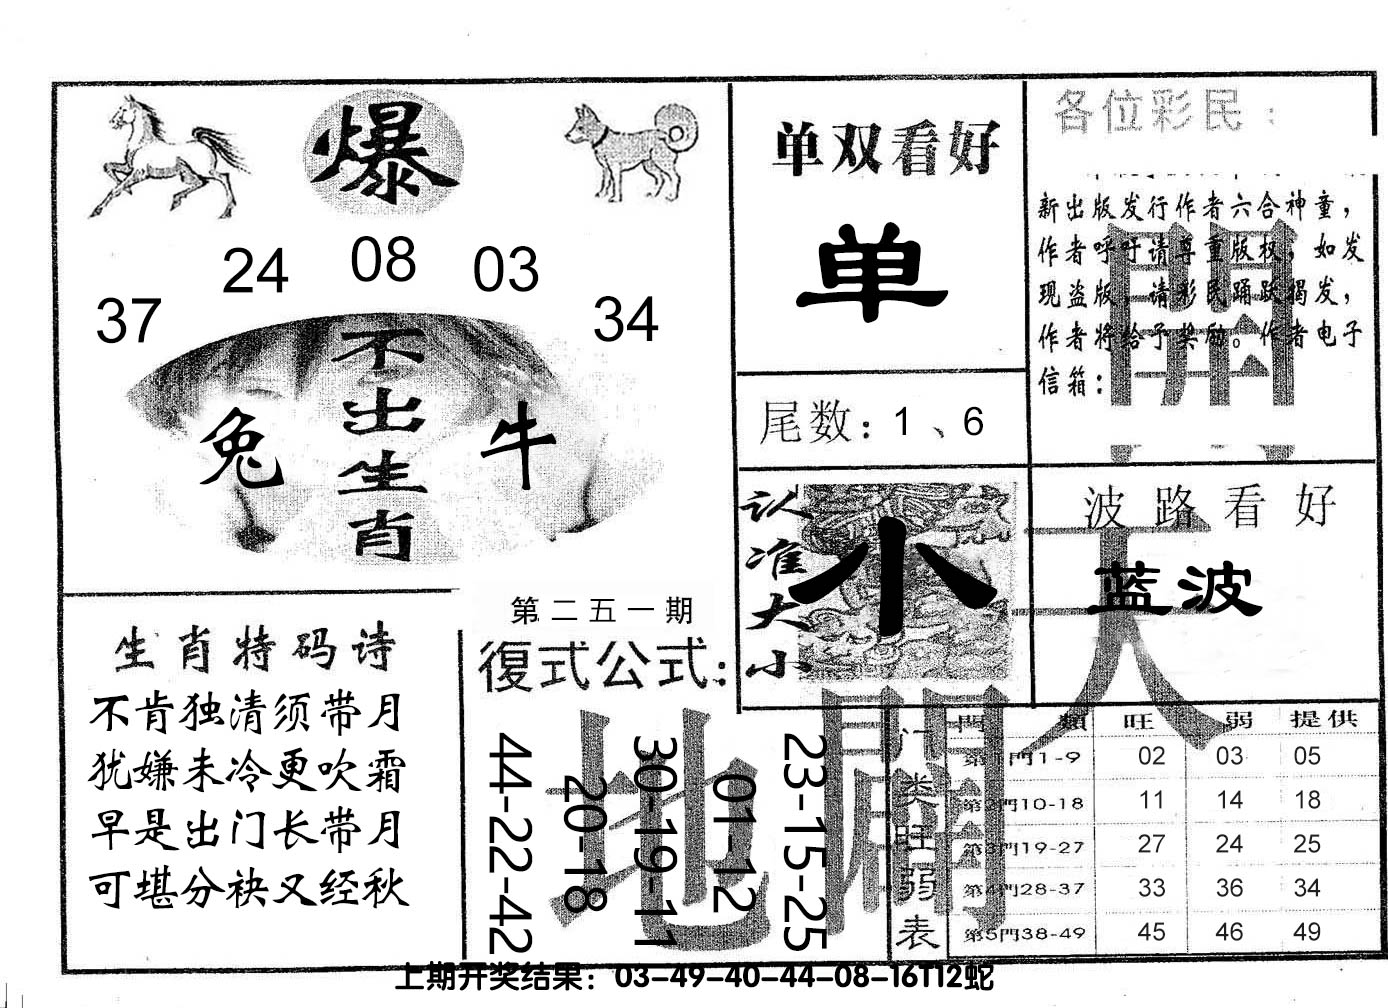 爆
37 24 08 03 34
不出生肖
兔 牛
单双看好
单
尾数：1、6
各位彩民：
新出版发行作者六合神童，
作者呼吁请尊重版权，如发
现盗版，请彩民踊跃揭发，
作者将给予奖励。作者电子
信箱：
開
认准大小
小
波路看好
蓝波
天
生肖特码诗
不肯独清须带月
犹嫌未冷更吹霜
早是出门长带月
可堪分袂又经秋
第二五一期
復式公式：
44-22-42
20-18
30-19-11
01-12
23-15-25
地
門类旺弱表
門類 旺 弱 提供
第1門1-9 02 03 05
第2門10-18 11 14 18
第3門19-27 27 24 25
第4門28-37 33 36 34
第5門38-49 45 46 49
上期开奖结果：03-49-40-44-08-16T12蛇